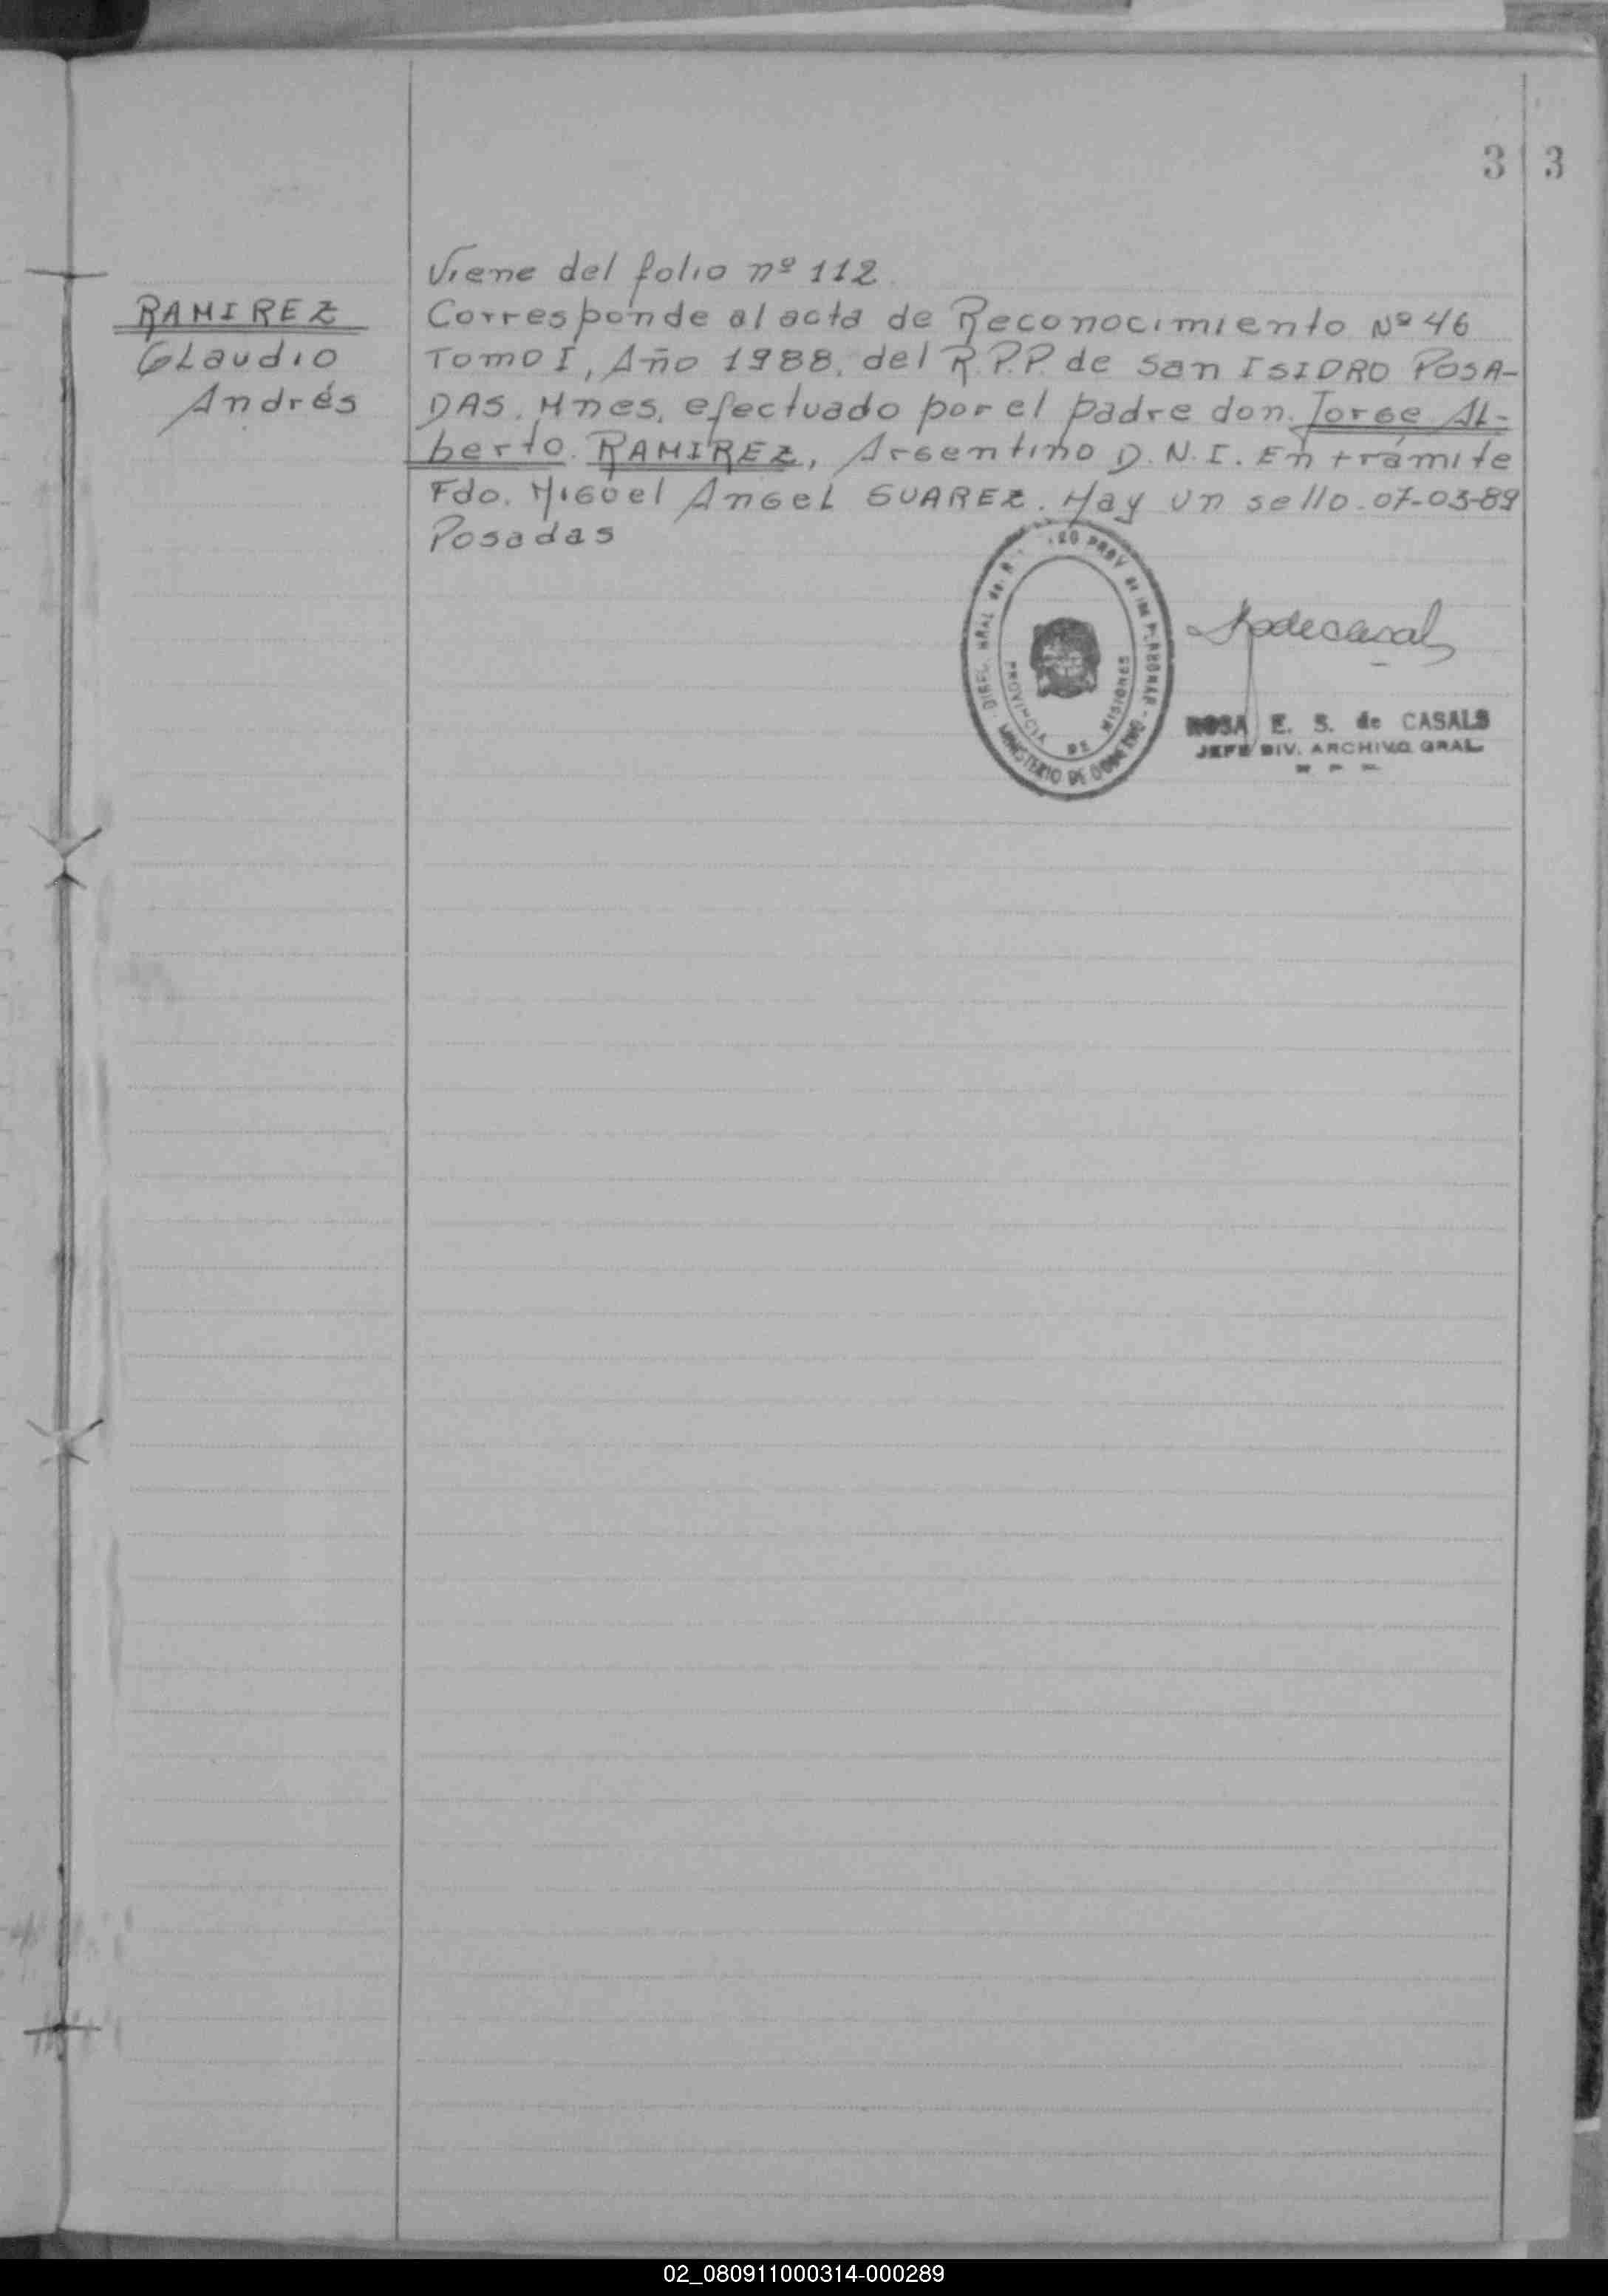 3 3
Viene del folio nº 112
RAMIREZ
Claudio
Andrés
Corresponde al acta de Reconocimiento Nº 46
Tomo I, Año 1988, del R.P.P. de San ISIDRO POSA-
DAS. Mnes. efectuado por el padre don Jorge Al-
berto. RAMIREZ, Argentino D.N.I. En trámite
Fdo. Miguel Angel SUAREZ. Hay un sello. 07-03-89
Posadas
PROV de las PERSONAS
MINISTERIO DE GOBIERNO
PROVINCIA DE MISIONES
ROSA E. S. de CASALS
JEFE DIV. ARCHIVO GRAL.
02_080911000314-000289